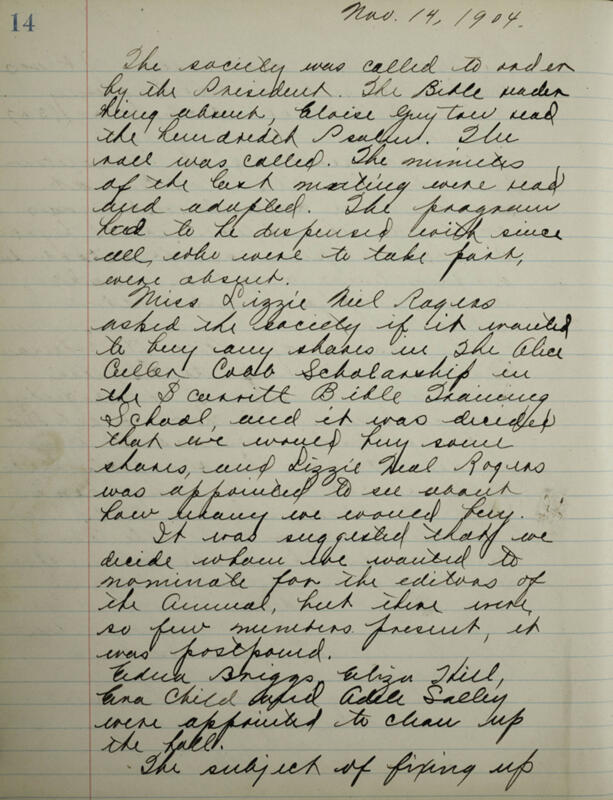 14
Nov. 14, 1904.
The society was called to order
by the President. The Bible reader
being absent, Eloise Guyton read
the hundredth Psalm. The
roll was called. The minutes
of the last meeting were read
and adopted. The program
had to be dispensed with since
all, who were to take part,
were absent.
Miss Lizzie Neil Rogers
asked the society if it wanted
to buy any shares in The Alice
Culler Cobb Scholarship in
the Scarritt Bible Training
School, and it was decided
that we would buy some
shares, and Lizzie Neal Rogers
was appointed to see about
how many we would buy.
It was suggested that we
decide whom we wanted to
nominate for the editors of
the Annual, but there were
so few members present, it
was postponed.
Edna Briggs, Eliza Hill,
Child and Adele Salley
were appointed to clean up
the hall.
The subject of fixing up